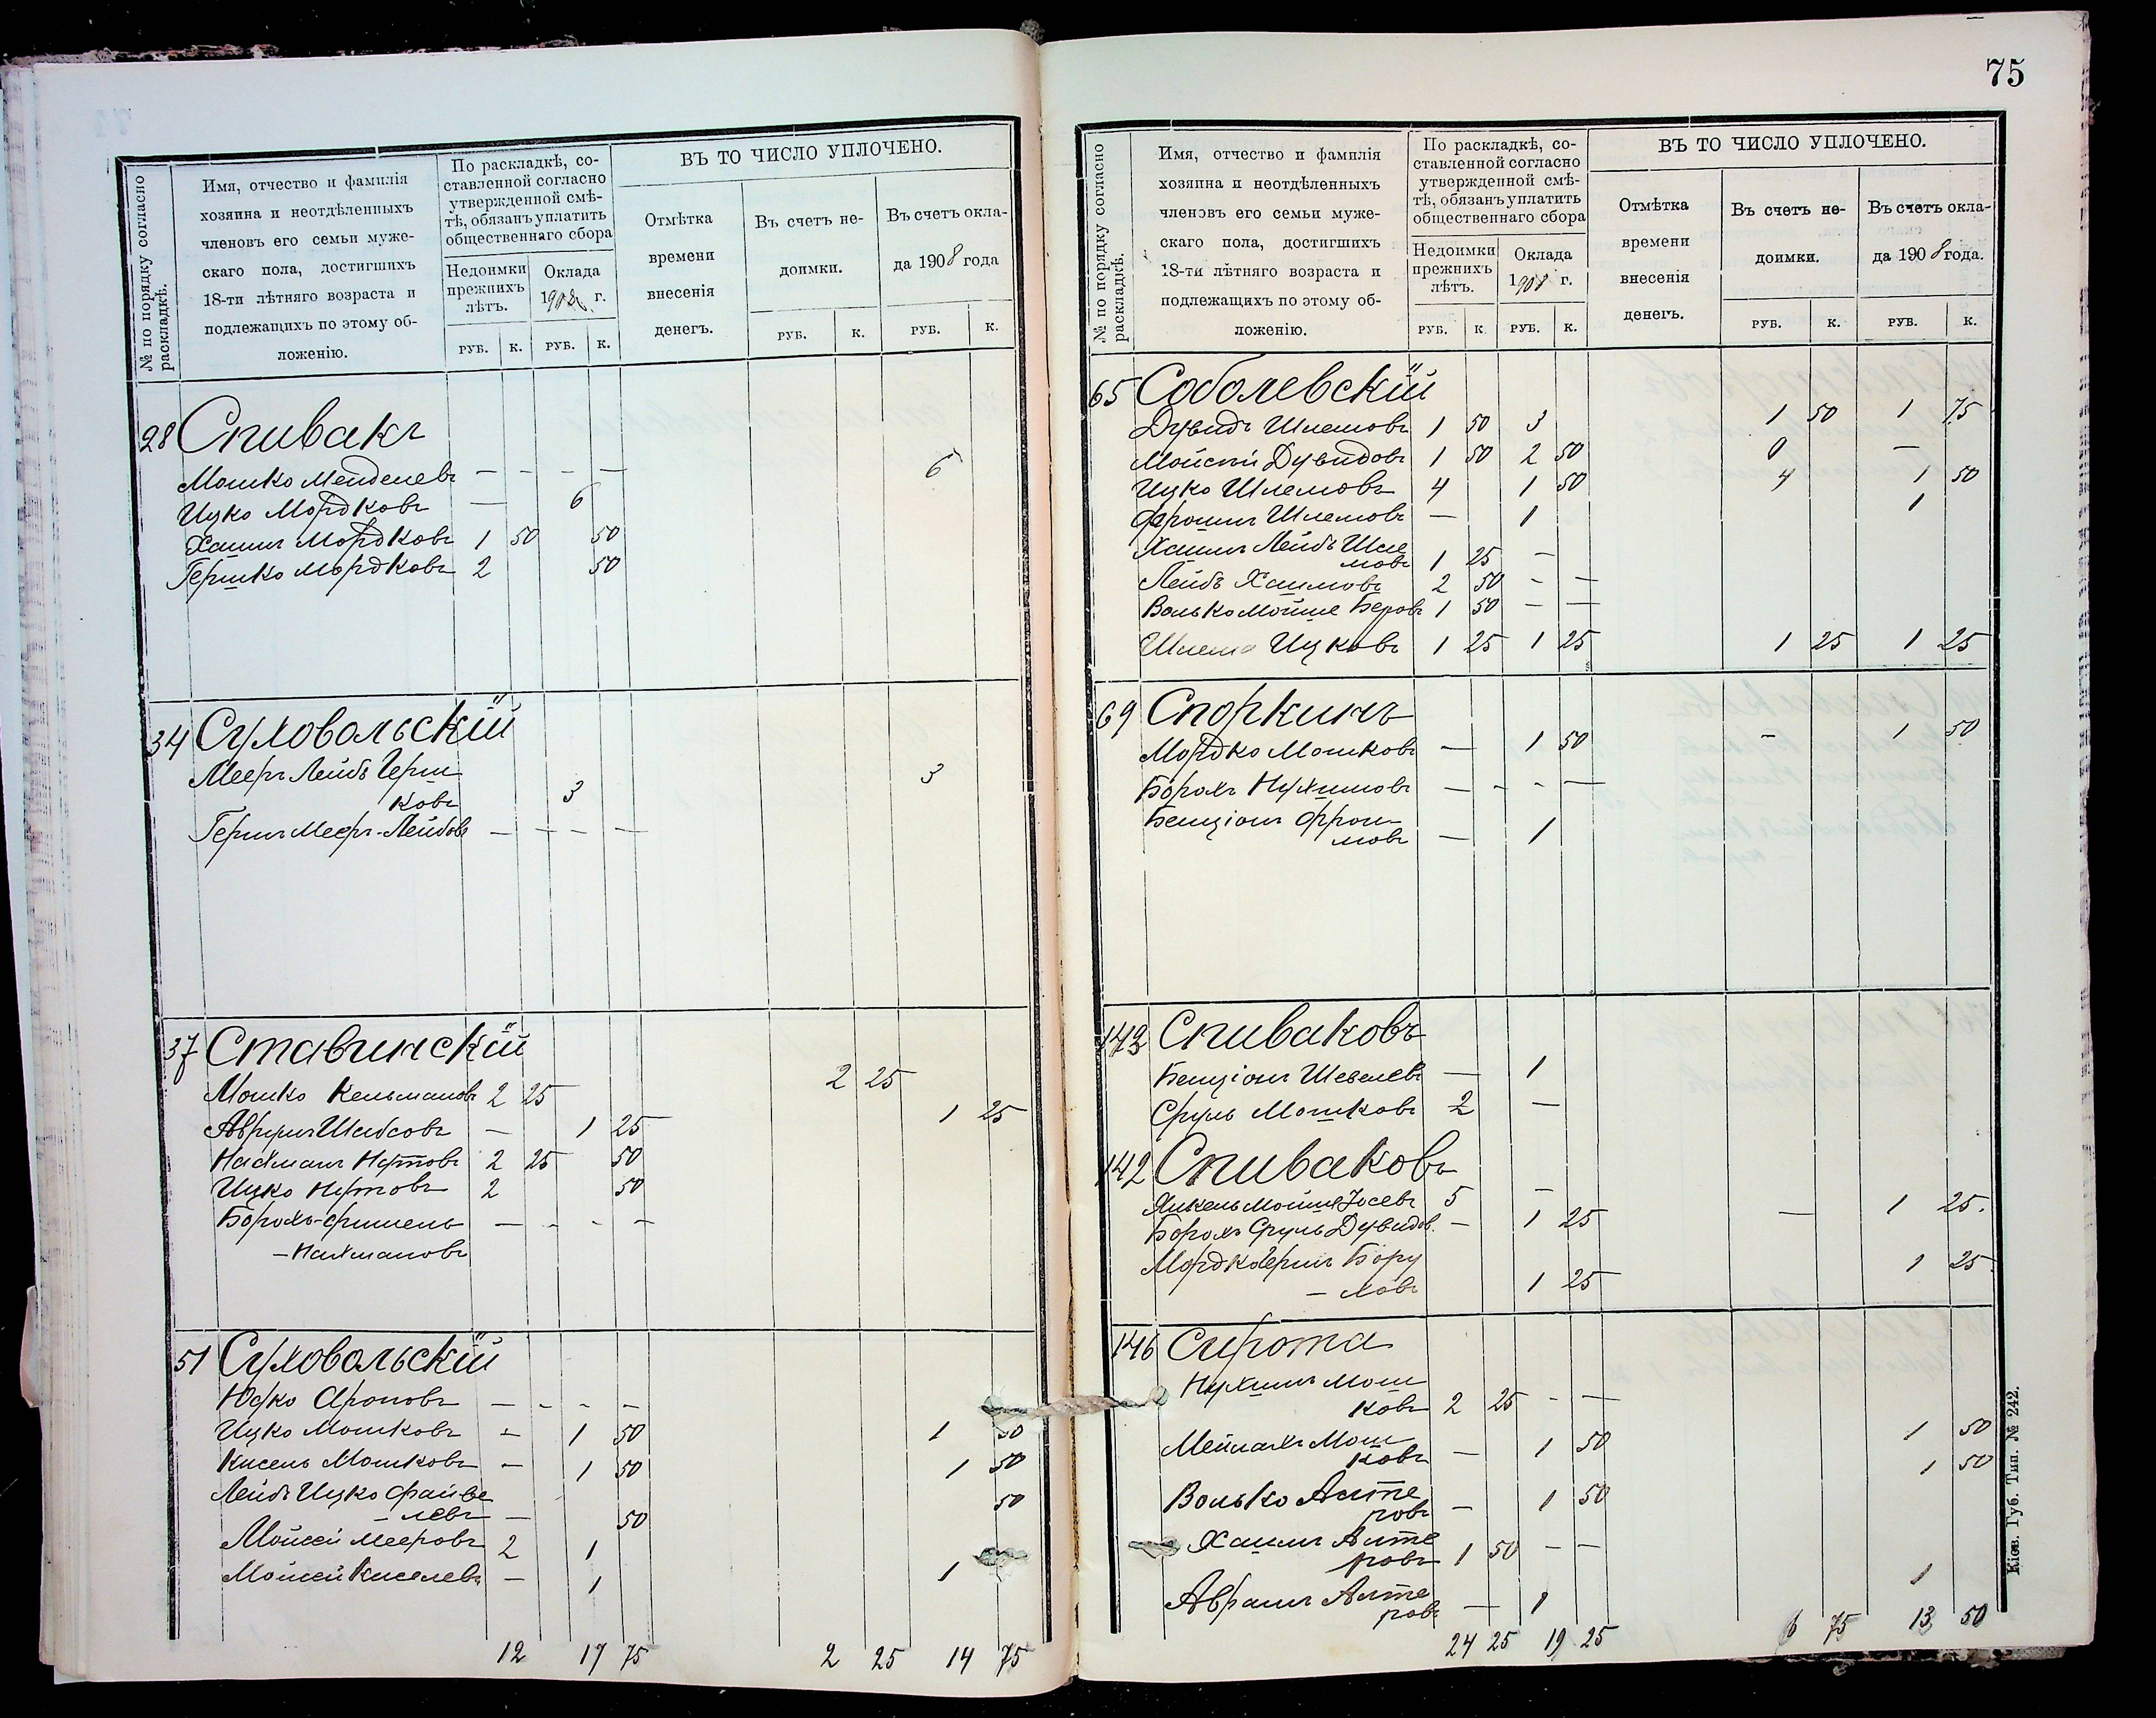 № по порядку согласно раскладкѣ.
Имя, отчество и фамилія
хозяина и неотдѣленныхъ
членовъ его семьи муже-
скаго пола, достигшихъ
18-ти лѣтняго возраста и
подлежащихъ по этому об-
ложенію.
По раскладкѣ, со-
ставленной согласно
утвержденной смѣ-
тѣ, обязанъ уплатить
общественнаго сбора
Недоимки прежнихъ лѣтъ.
Оклада 1908 г.
РУБ. К. РУБ. К.
ВЪ ТО ЧИСЛО УПЛОЧЕНО.
Отмѣтка времени внесенія денегъ.
Въ счетъ не-
доимки.
РУБ. К.
Въ счетъ окла-
да 1908 года
РУБ. К.
28 Спивакъ
Мошко Менделевъ — - - — 6
Ицко Мордковъ — 6
Хаимъ Мордковъ 1 50 50
Гершко Мордковъ 2 50
34 Суховольскій
Мееръ Лейбъ Герш
ковъ 3 3
Гершъ Мееръ-Лейбовъ — — - —
37 Ставинскій
Мошко Кельмановъ 2 25 2 25
Аврумъ Шабсовъ — 1 25 1 25
Нахманъ Нутовъ 2 25 50
Ицко Нутовъ 2 50
Борохъ-Фишель — - - —
-Нахмановъ
51 Суховольскій
Юфко Ароновъ — - - —
Ицко Мошковъ — 1 50 1 50
Кисель Мошковъ — 1 50 1 50
Лейбъ Ицко Файве
-левъ — 50 50
Мойсей Мееровъ 2 1
Мойсей Киселевъ — 1 1
12 17 75 2 25 14 75
75
№ по порядку согласно раскладкѣ.
Имя, отчество и фамилія
хозяина и неотдѣленныхъ
членовъ его семьи муже-
скаго пола, достигшихъ
18-ти лѣтняго возраста и
подлежащихъ по этому об-
ложенію.
По раскладкѣ, со-
ставленной согласно
утвержденной смѣ-
тѣ, обязанъ уплатить
общественнаго сбора
Недоимки прежнихъ лѣтъ.
Оклада 1908 г.
РУБ. К. РУБ. К.
ВЪ ТО ЧИСЛО УПЛОЧЕНО.
Отмѣтка времени внесенія денегъ.
Въ счетъ не-
доимки.
РУБ. К.
Въ счетъ окла-
да 1908 года.
РУБ. К.
65 Соболевскій
Дувидъ Шлемовъ 1 50 3 1 50 1 75
Мойсей Дувидовъ 1 50 2 50 0 —
Ицко Шлемовъ 4 1 50 4 1 50
Фроимъ Шлемовъ — 1 1
Хаимъ Лейбъ Шле
мовъ 1 25 —
Лейбъ Хаимовъ 2 50 - —
Волько Мойше Беровъ 1 50 — —
Шлема Ицковъ 1 25 1 25 1 25 1 25
69 Споркинъ
Мордко Мошковъ — 1 50 — 1 50
Борохъ Нухимовъ — - - —
Бенціонъ Фрои-
мовъ — 1
143 Спиваковъ
Бенціонъ Шевелевъ — 1
Сруль Мошковъ 2 —
142 Спиваковъ
Янкель Мойше Іосевъ 5 —
Борохъ Сруль Дувидов. — 1 25 — 1 25.
Мордко Гершъ Бору
-ховъ 1 25 1 25
146 Сирота
Нухимъ Мош
ковъ 2 25 - —
Мейлахъ Мош
ковъ — 1 50 1 50
Волько Алте
ровъ — 1 50 1 50
Хаимъ Алте
ровъ 1 50 — —
Аврамъ Алте
ровъ — 1 1
24 25 19 25 6 75 13 50
Кіев. Губ. Тип. № 242.